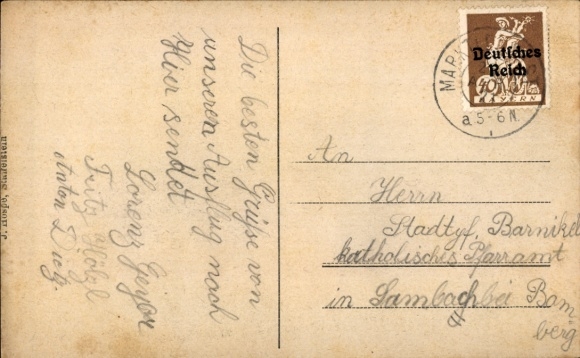 Die besten Grüße von
unseren Ausflug nach
Hier sendet
Lorenz Geyer
Fritz Hölzl
Anton Dietz
An
Herrn
Stadtpf. Barnikel
katholisches Pfarramt
in Sambach bei Bam-
berg
Deutsches
Reich
40
BAYERN
MARK
a 5-6 N.
Staffelstein